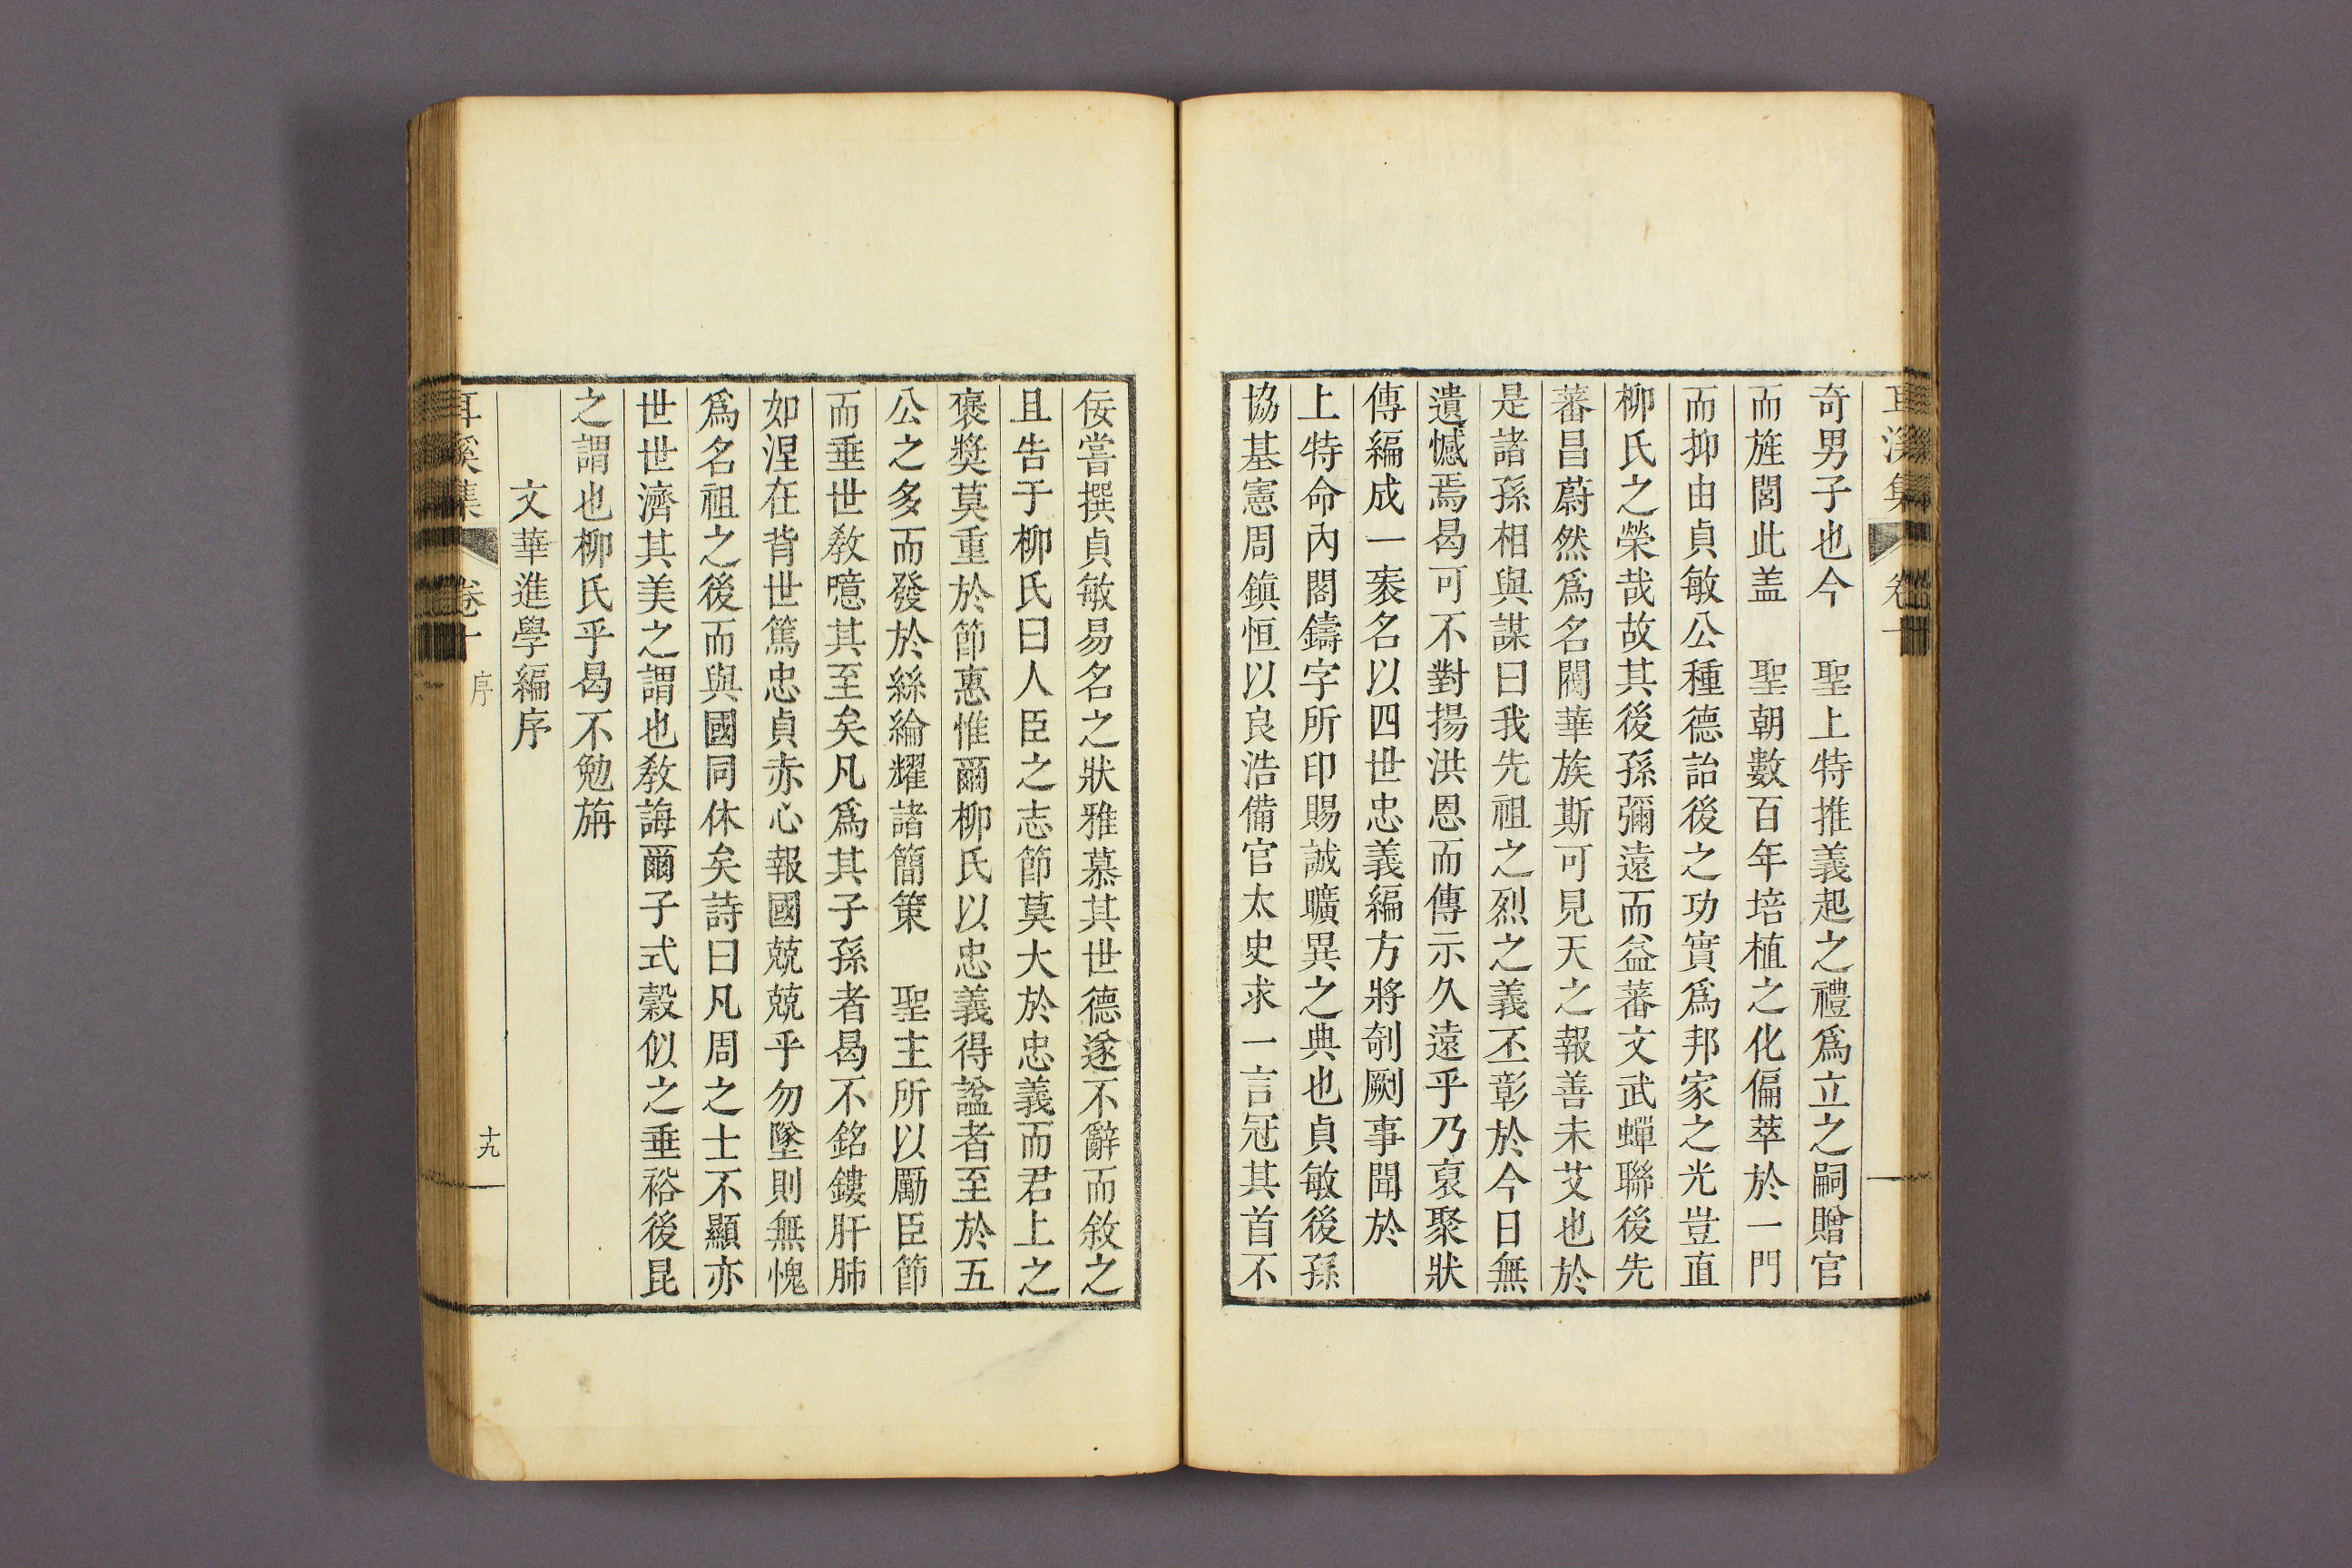 耳溪集 卷十
奇男子也今 聖上特推義起之禮爲立之嗣贈官
而旌閭此盖 聖朝數百年培植之化偏萃於一門
而抑由貞敏公種德詒後之功實爲邦家之光豈直
柳氏之榮哉故其後孫彌遠而益蕃文武蟬聯後先
蕃昌蔚然爲名閥華族斯可見天之報善未艾也於
是諸孫相與謀曰我先祖之烈之義丕彰於今日無
遺憾焉曷可不對揚洪恩而傳示久遠乎乃裒聚狀
傳編成一袠名以四世忠義編方將剞劂事聞於
上特命內閣鑄字所印賜誠曠異之典也貞敏後孫
協基憲周鎭恒以良浩備官太史求一言冠其首不
佞嘗撰貞敏易名之狀雅慕其世德遂不辭而敘之
且告于柳氏曰人臣之志節莫大於忠義而君上之
褒奬莫重於節惠惟爾柳氏以忠義得諡者至於五
公之多而發於絲綸耀諸簡策 聖主所以勵臣節
而垂世敎噫其至矣凡爲其子孫者曷不銘鏤肝肺
如涅在背世篤忠貞赤心報國兢兢乎勿墜則無愧
爲名祖之後而與國同休矣詩曰凡周之士不顯亦
世世濟其美之謂也敎誨爾子式穀似之垂裕後昆
之謂也柳氏乎曷不勉旃
文華進學編序
耳溪集 卷十 序 十九